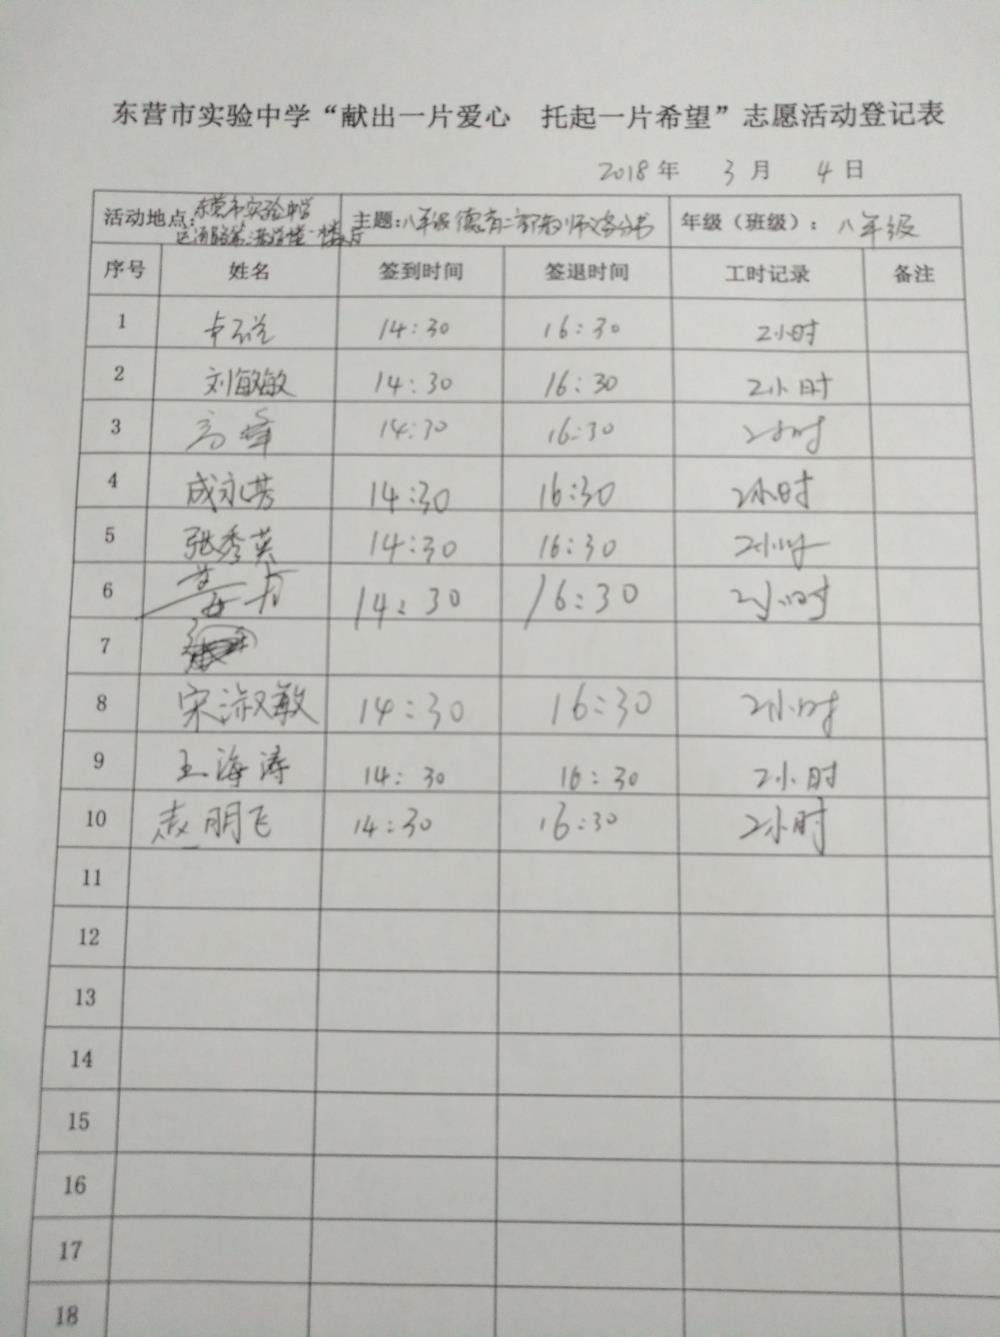 东营市实验中学“献出一片爱心 托起一片希望”志愿活动登记表
2018年 3月 4日
活动地点: 东营市实验中学 主题: 八年级德育二部教师义务分书 年级（班级）: 八年级
序号 姓名 签到时间 签退时间 工时记录 备注
1 14:30 16:30 2小时
2 刘敏敏 14:30 16:30 2小时
3 高峰 14:30 16:30 2小时
4 成永芳 14:30 16:30 2小时
5 张秀英 14:30 16:30 2小时
6 14:30 16:30 2小时
7
8 宋淑敏 14:30 16:30 2小时
9 王海涛 14:30 16:30 2小时
10 赵明飞 14:30 16:30 2小时
11
12
13
14
15
16
17
18